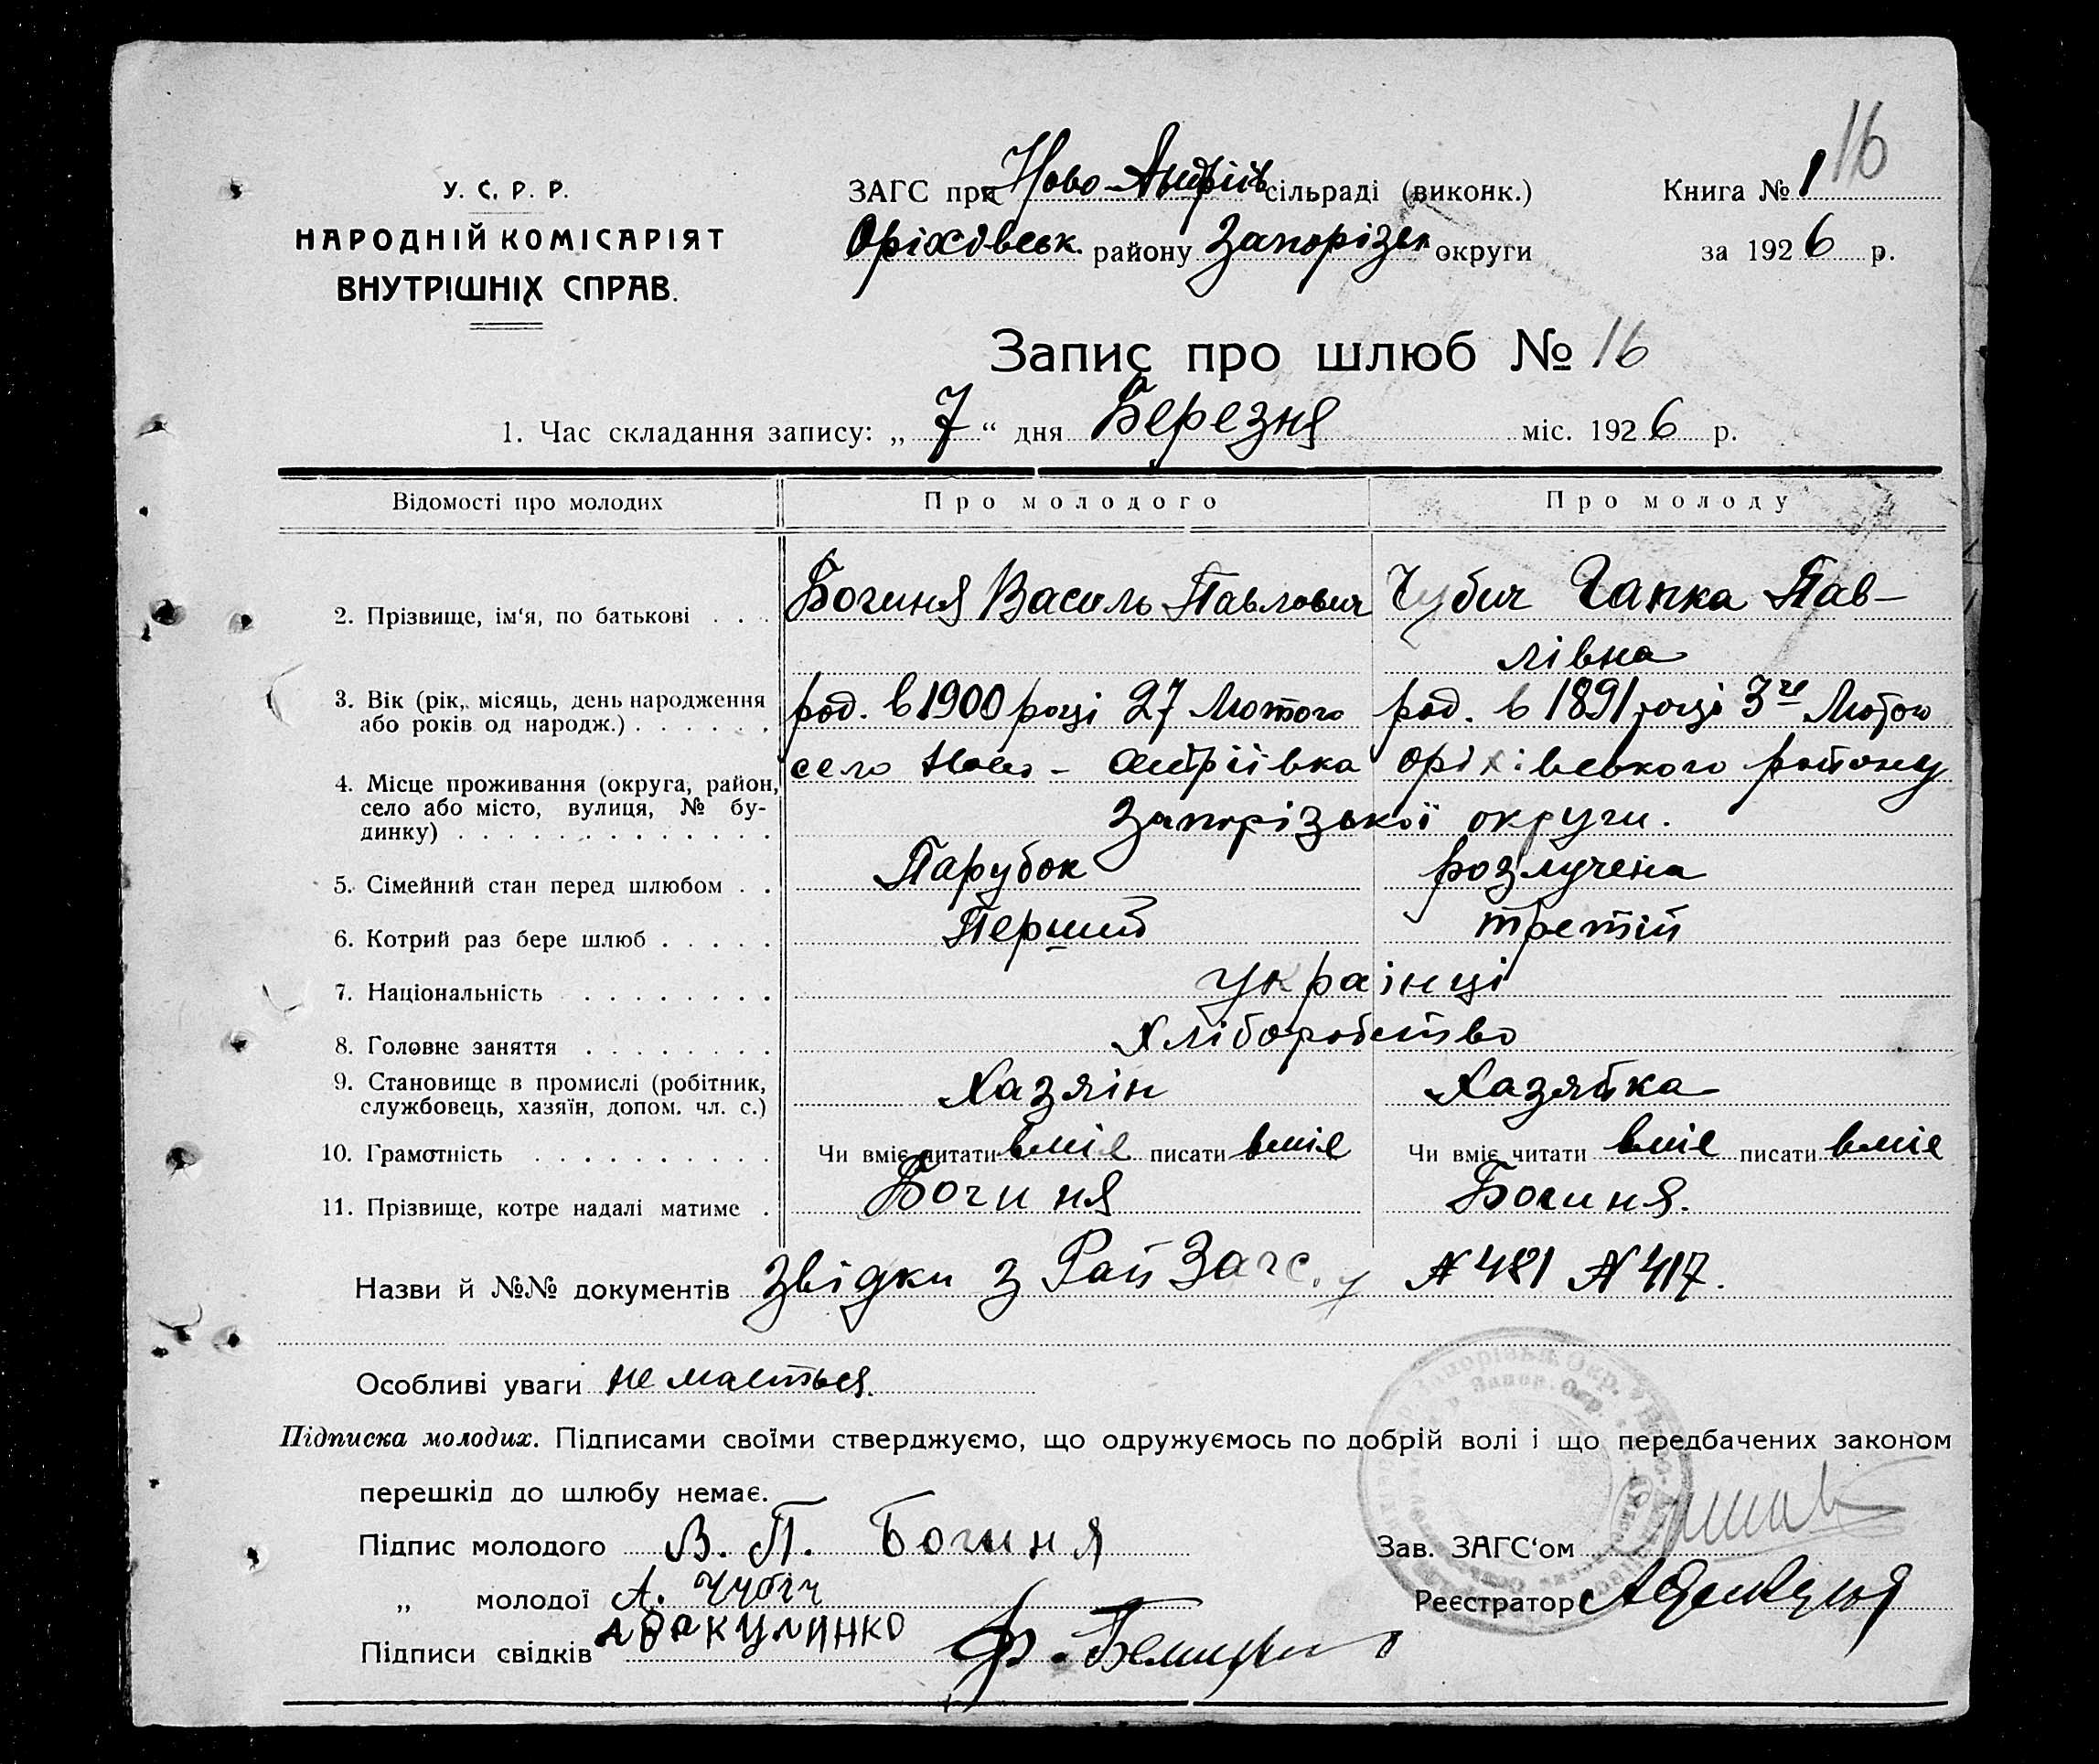 16
У. С. Р. Р.
НАРОДНІЙ КОМІСАРІЯТ
ВНУТРІШНІХ СПРАВ.
ЗАГС при Ново-Андріїв сільраді (виконк.)
Оріхівськ. району Запорізьк округи
Книга № 1
за 1926 р.
Запис про шлюб № 16
1. Час складання запису: „ 7 “ дня Березня міс. 1926 р.
Відомості про молодих Про молодого Про молоду
2. Прізвище, ім'я, по батькові . . . Богиня Василь Павлович Чубич Гапка Пав-
лівна
3. Вік (рік, місяць, день народження
або років од народж.) . . . . . . род. в 1900 році 27 Лютого род. в 1891 році 3го Лютого
4. Місце проживання (округа, район,
село або місто, вулиця, № бу-
динку) . . . . . . . . . . . . село Ново-Андріївка Оріхівського району
Запорізької округи.
5. Сімейний стан перед шлюбом . . Парубок розлучена
6. Котрий раз бере шлюб . . . . . Перший третій
7. Національність . . . . . . . . українці
8. Головне заняття . . . . . . . . Хліборобство
9. Становище в промислі (робітник,
службовець, хазяїн, допом. чл. с.) Хазяїн Хазяйка
10. Грамотність . . . . . . . . . . Чи вміє читати вміє писати вміє Чи вміє читати вміє писати вміє
11. Прізвище, котре надалі матиме . Богиня Богиня.
Назви й №№ документів Звідки з Рай Загс. у № 481 № 417.
Особливі уваги не мається.
Підписка молодих. Підписами своїми стверджуємо, що одружуємось по добрій волі і що передбачених законом
перешкід до шлюбу немає.
Підпис молодого В. П. Богиня
„ молодої А. Чубіч
Підписи свідків
Зав. ЗАГС'ом
Реєстратор